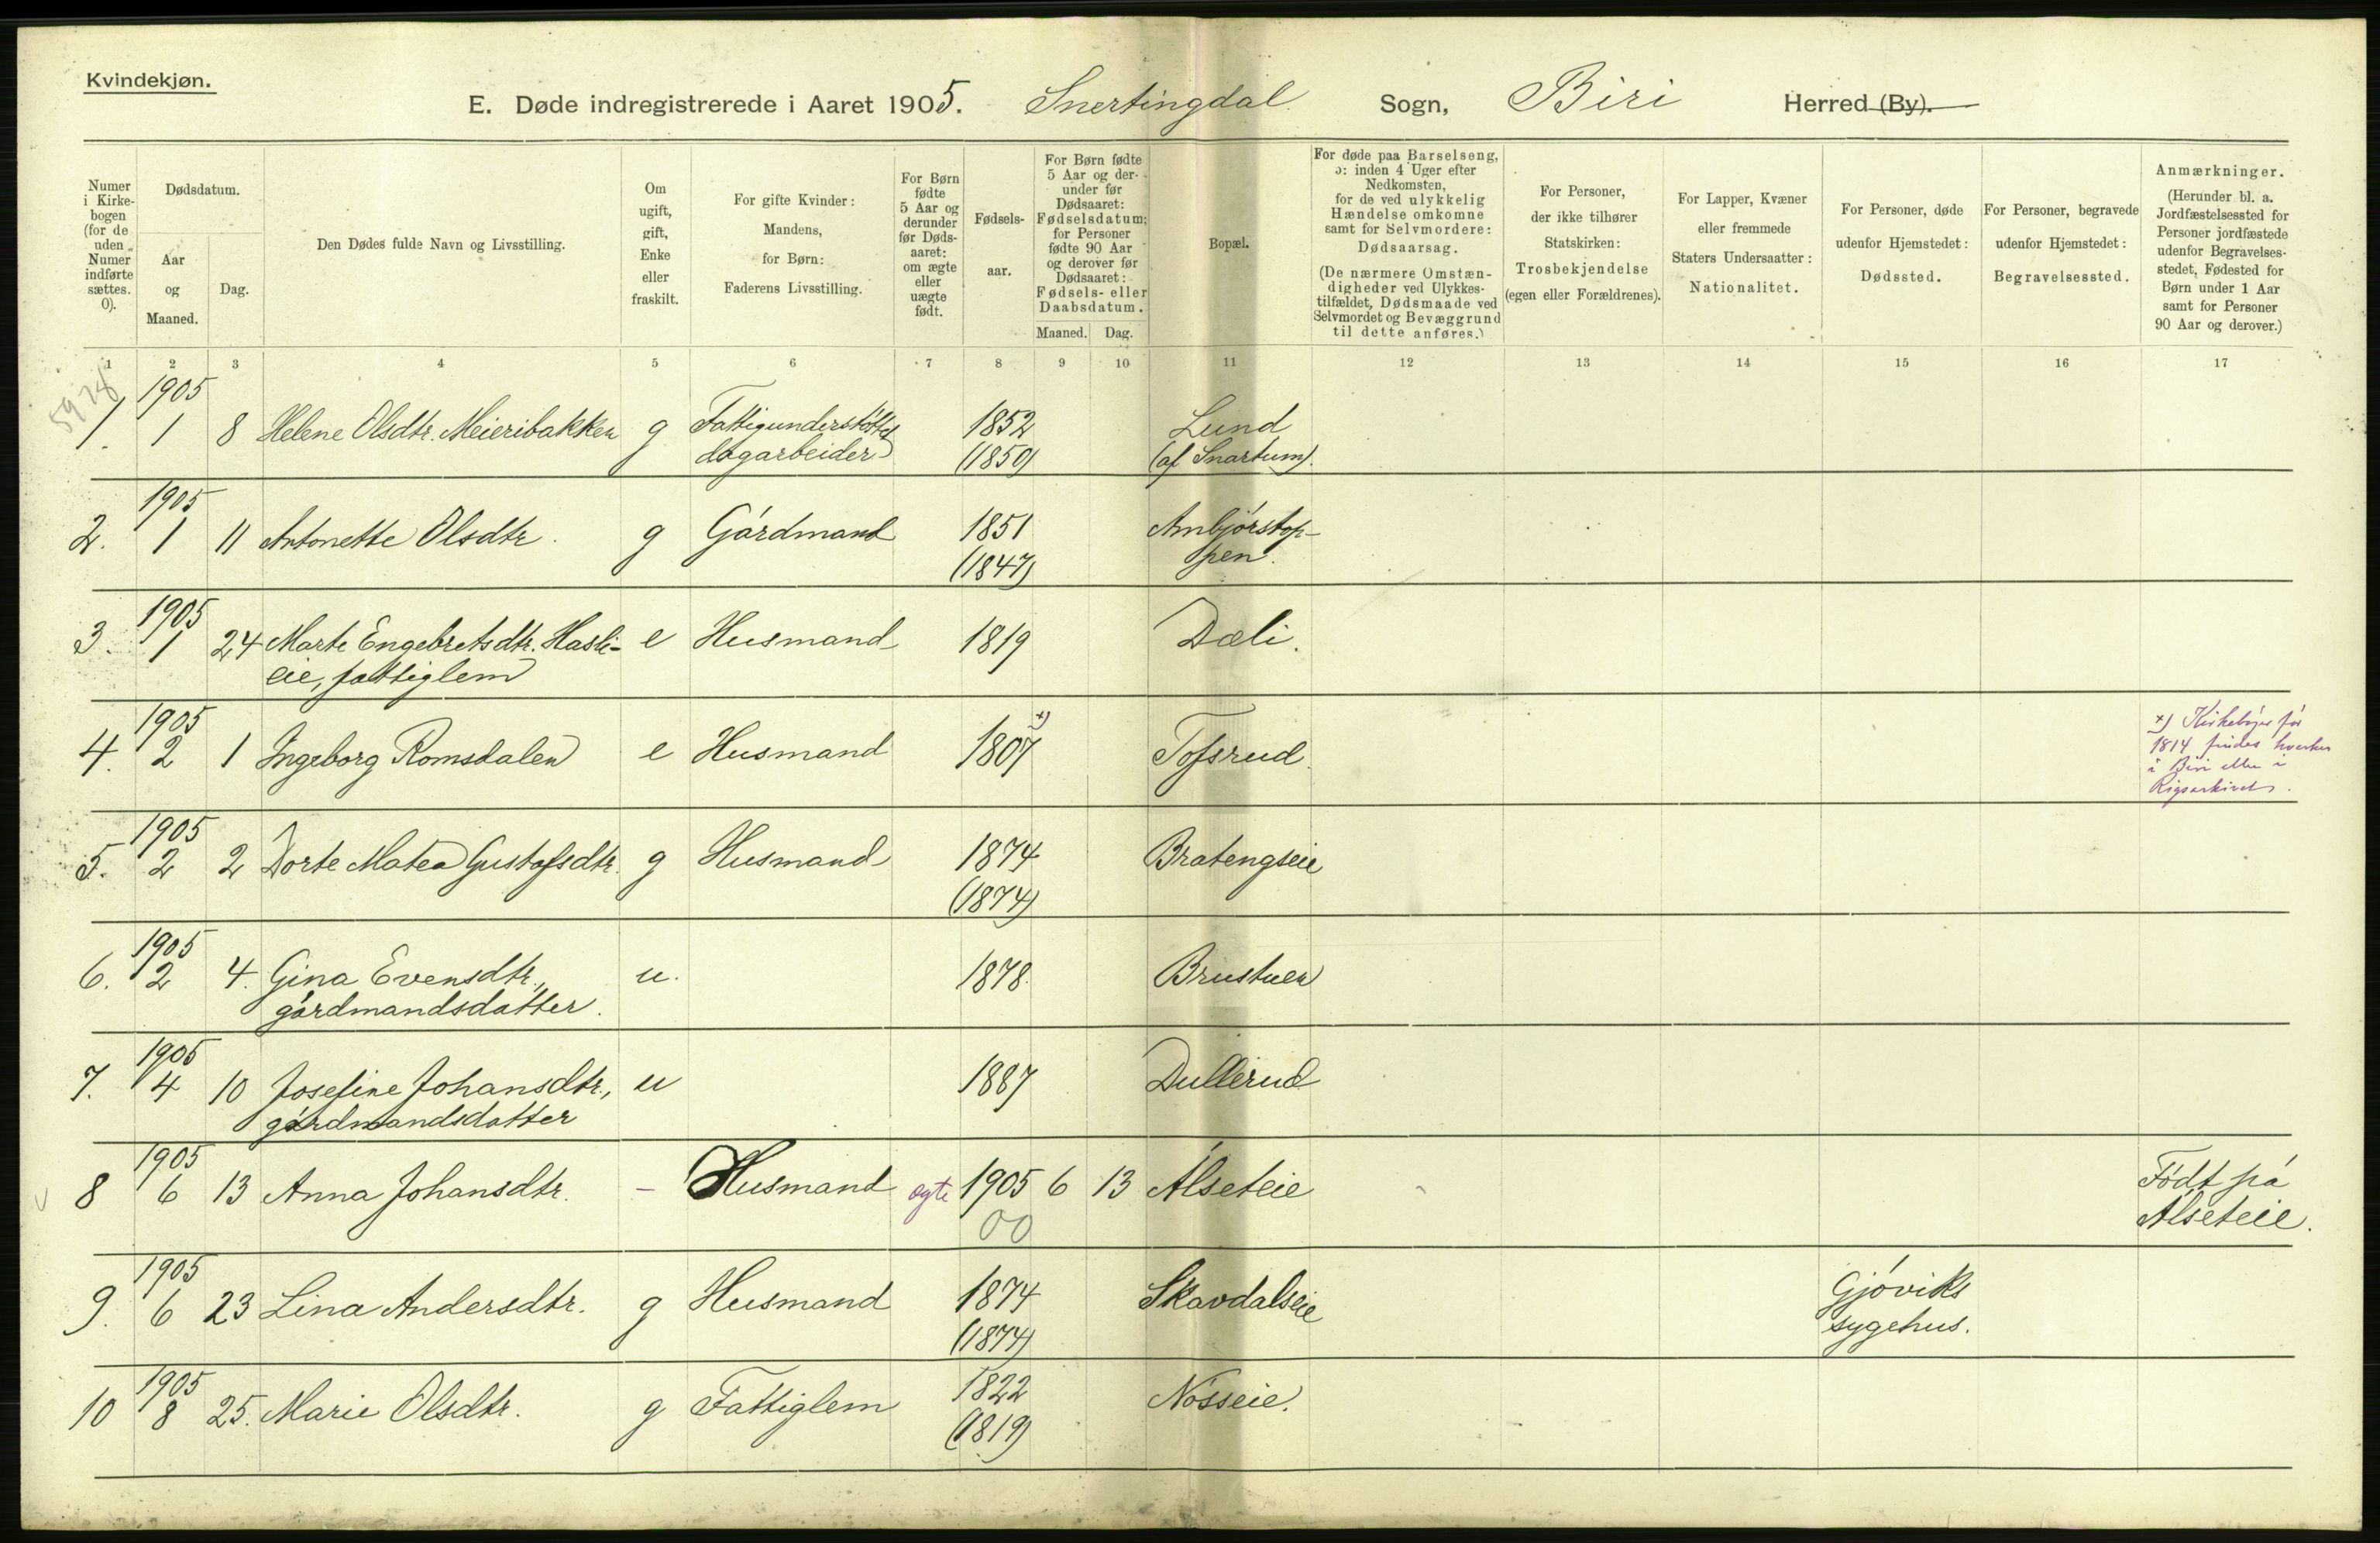 Kvindekjøn.
E. Døde indregistrerede i Aaret 1905. Snertingdal Sogn, Biri Herred (By).
Numer i Kirkebogen (for de uden Numer indførte sættes. 0).
Dødsdatum.
Aar og Maaned.
Dag.
Den Dødes fulde Navn og Livsstilling.
Om ugift, gift, Enke eller fraskilt.
For gifte Kvinder: Mandens, for Børn: Faderens Livsstilling.
For Børn fødte 5 Aar og derunder før Døds-aaret: om ægte eller uægte født.
Fødsels-aar.
For Børn fødte 5 Aar og der-under før Dødsaaret: Fødselsdatum; for Personer fødte 90 Aar og derover før Dødsaaret: Fødsels- eller Daabsdatum.
Maaned. Dag.
Bopæl.
For døde paa Barselseng, ɔ: inden 4 Uger efter Nedkomsten, for de ved ulykkelig Hændelse omkomne samt for Selvmordere: Dødsaarsag.
(De nærmere Omstæn-digheder ved Ulykkes-tilfældet, Dødsmaade ved Selvmordet og Bevæggrund til dette anføres.)
For Personer, der ikke tilhører Statskirken: Trosbekjendelse (egen eller Forældrenes).
For Lapper, Kvæner eller fremmede Staters Undersaatter: Nationalitet.
For Personer, døde udenfor Hjemstedet: Dødssted.
For Personer, begravede udenfor Hjemstedet: Begravelsessted.
Anmærkninger.
(Herunder bl. a. Jordfæstelsessted for Personer jordfæstede udenfor Begravelses-stedet, Fødested for Børn under 1 Aar samt for Personer 90 Aar og derover.)
1 2 3 4 5 6 7 8 9 10 11 12 13 14 15 16 17
1905
1. 1 8 Helene Olsdtr. Meieribakken g Fattigunderstöttet 1852 Lund
dagarbeider (1850) (af Snartum).
1905
2. 1 11 Antonette Olsdtr. g Gårdmand 1851 Ambjörstop-
(1847) pen.
1905
3. 1 24 Marte Engebretsdtr. Hasli- e Husmand 1819 Dæli.
eie, fattiglem
1905
4. 2 1 Ingeborg Romsdalen e Husmand 1807 x) Tofsrud
x) Kirkebøger før
1814 findes hverken
i Biri eller i
Rigsarkivet.
1905
5. 2 2 Dorte Matea Gustafsdtr. g Husmand 1874 Bratengseie
(1874)
1905
6. 2 4. Gina Evensdtr., u. 1878 Brustuen
gårdmandsdatter.
1905
7. 4 10 Josefine Johansdtr., u 1887 Dullerud
gårdmandsdatter
1905
8 6 13 Anna Johansdtr. - Husmand ægte 1905 6 13 Alseteie Født på
00 Alseteie.
1905
9. 6 23 Lina Andersdtr. g Husmand 1874 Skavdalseie Gjöviks
(1874) sygehus.
1905
10 8 25. Marie Olsdtr. g Fattiglem 1822 Nösseie.
(1819)